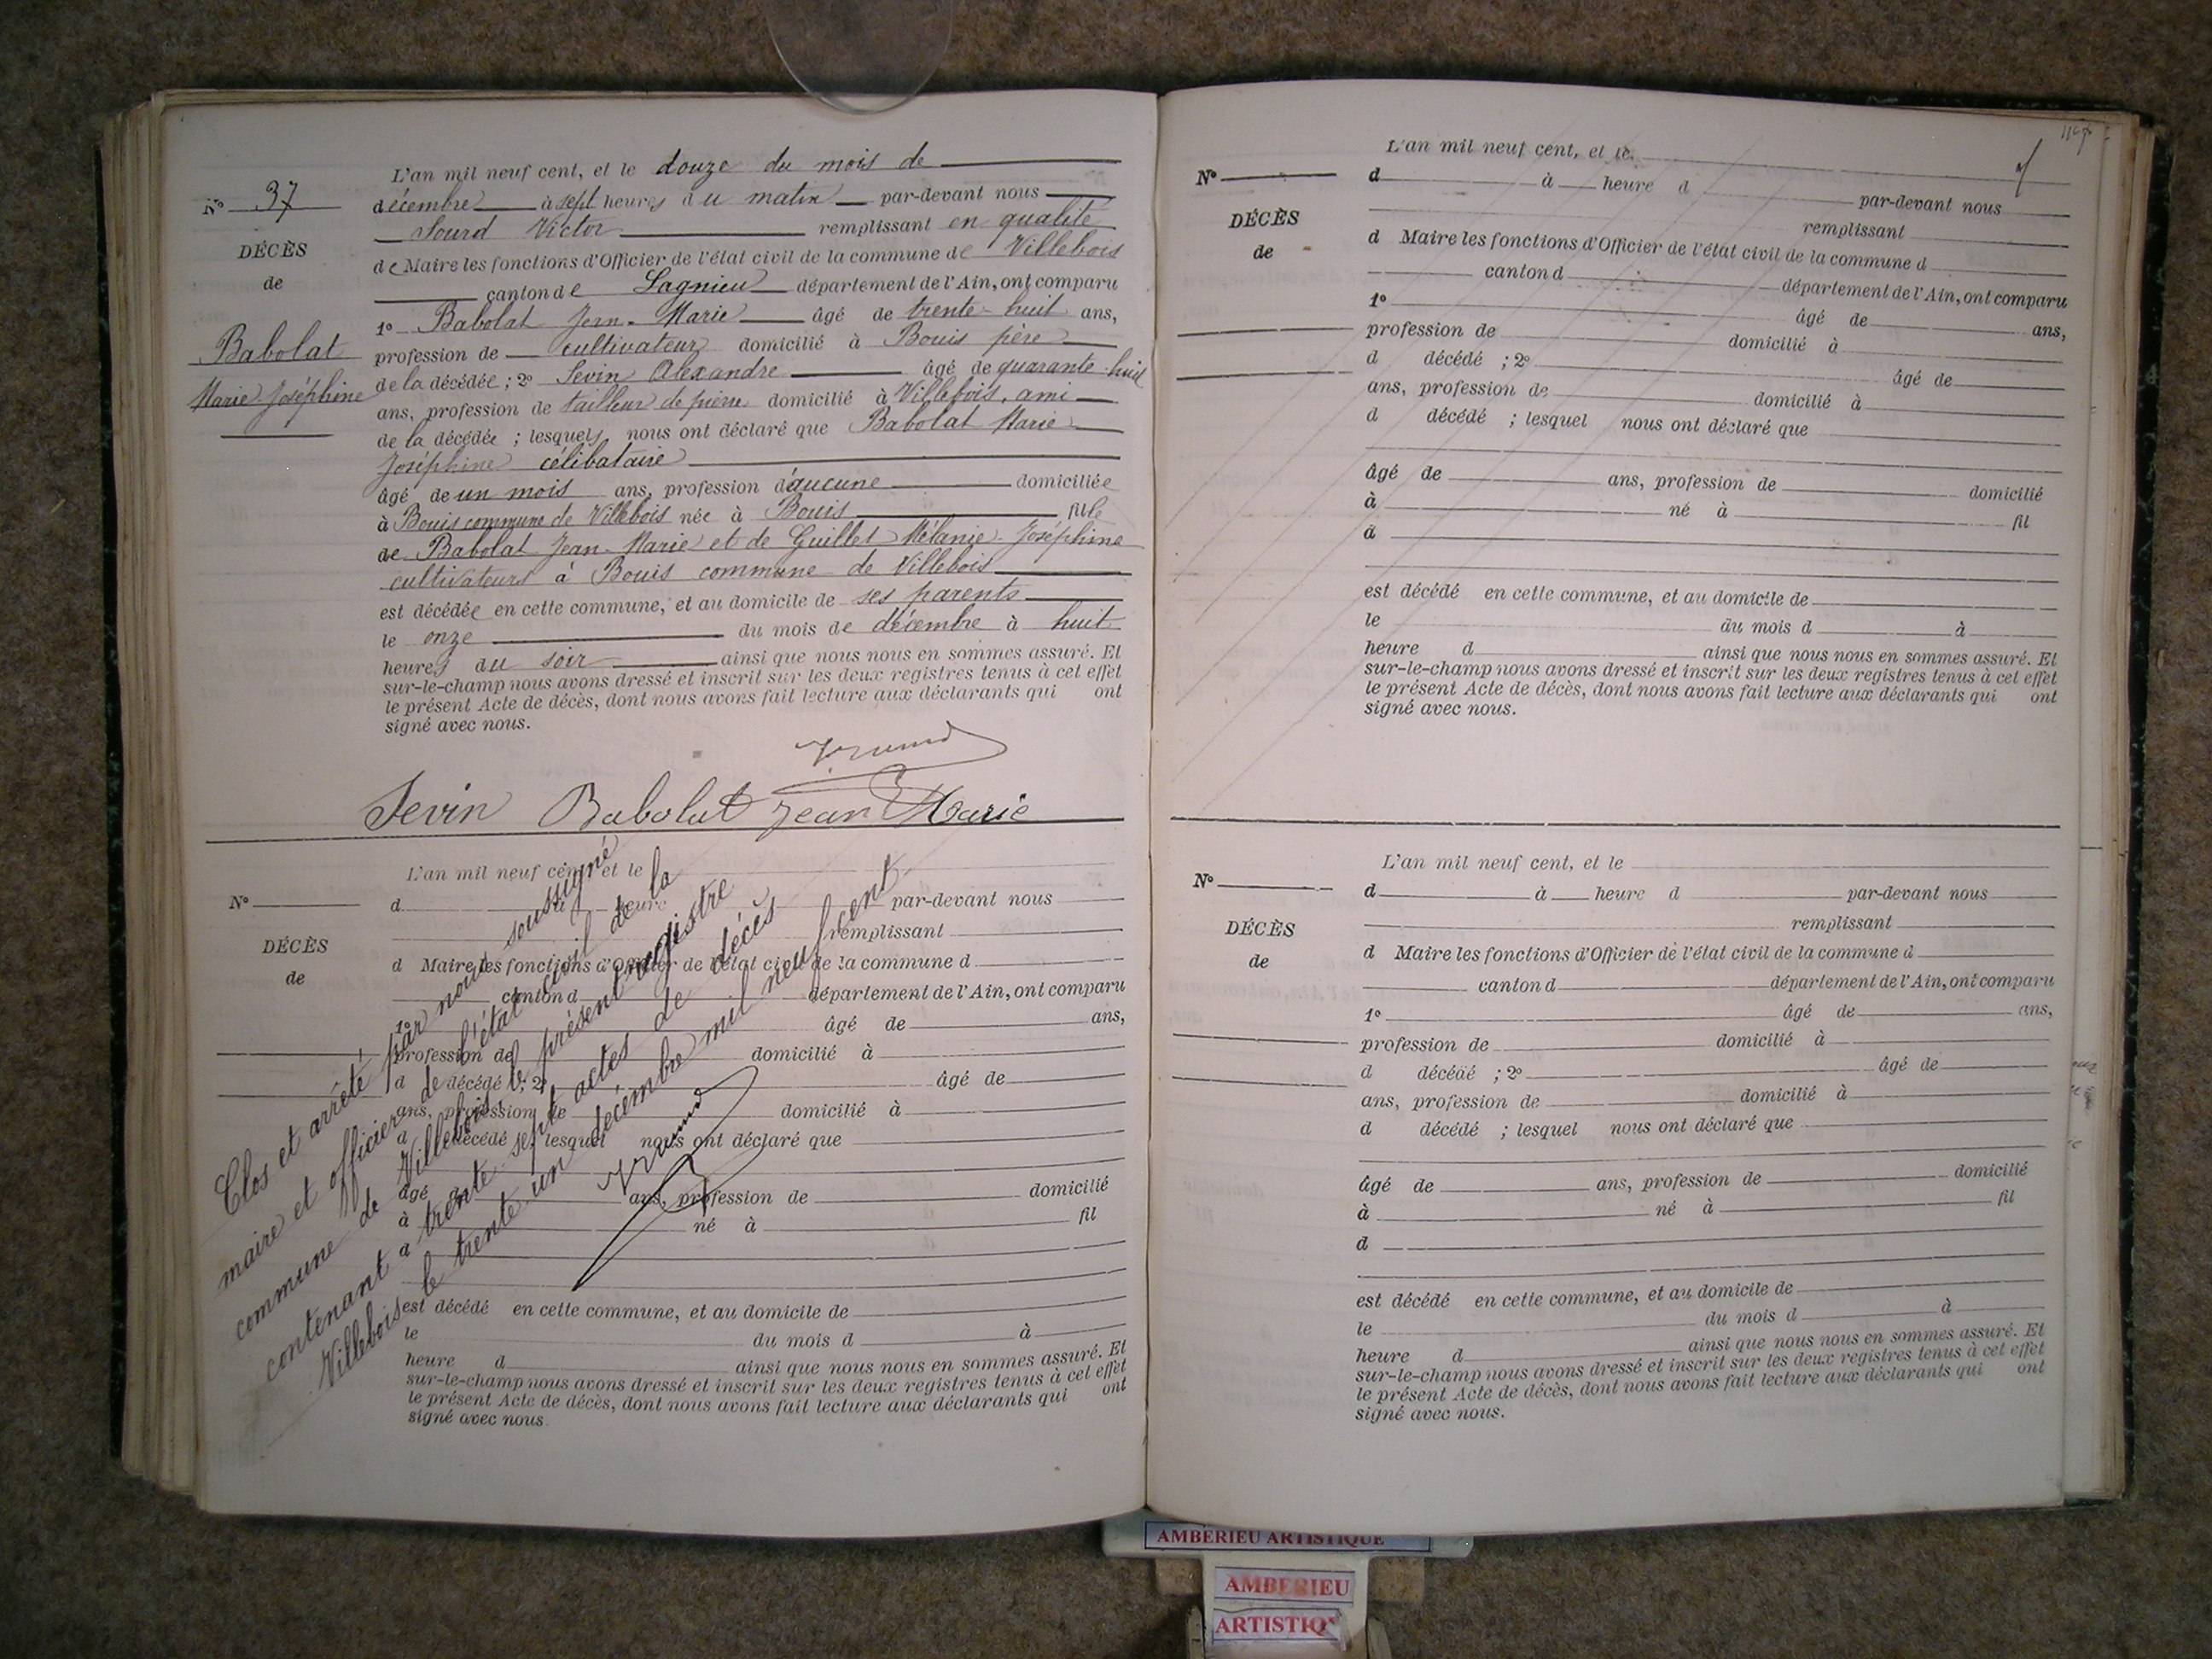 N° 37
DÉCÈS
de
Babolat
Marie Joséphine
L'an mil neuf cent, et le douze du mois de
décembre à sept heures du matin par-devant nous
Sourd Victor remplissant en qualité
de Maire les fonctions d'Officier de l'état civil de la commune de Villebois
canton de Lagnieu département de l'Ain, ont comparu
1° Babolat Jean-Marie âgé de trente-huit ans,
profession de cultivateur domicilié à Bouis père
de la décédée ; 2° Sevin Alexandre âgé de quarante-huit
ans, profession de tailleur de pierre domicilié à Villebois, ami
de la décédée ; lesquels nous ont déclaré que Babolat Marie
Joséphine célibataire
âgé de un mois ans, profession d'aucune domiciliée
à Bouis commune de Villebois née à Bouis fille
de Babolat Jean-Marie et de Guillet Mélanie-Joséphine
cultivateurs à Bouis commune de Villebois
est décédée en cette commune, et au domicile de ses parents
le onze du mois de décembre à huit
heures du soir ainsi que nous nous en sommes assuré. Et
sur-le-champ nous avons dressé et inscrit sur les deux registres tenus à cet effet
le présent Acte de décès, dont nous avons fait lecture aux déclarants qui ont
signé avec nous.
Sevin Babolat Jean Marie
N°
DÉCÈS
de
L'an mil neuf cent, et le
d à heure par-devant nous
remplissant
d Maire les fonctions d'Officier de l'état civil de la commune d
canton d département de l'Ain, ont comparu
1° âgé de ans,
profession de domicilié à
d décédé ; 2° âgé de
ans, profession de domicilié à
d décédé ; lesquel nous ont déclaré que
âgé de ans, profession de domicilié
à né à fil
d
est décédé en cette commune, et au domicile de
le du mois d à
heure d ainsi que nous nous en sommes assuré. Et
sur-le-champ nous avons dressé et inscrit sur les deux registres tenus à cet effet
le présent Acte de décès, dont nous avons fait lecture aux déclarants qui ont
signé avec nous.
Clos et arrêté par nous soussigné
maire et officier de l'état civil de la
commune de Villebois, le présent registre
contenant trente sept actes de décès
Villebois le trente un décembre mil neuf cent
N°
DÉCÈS
de
L'an mil neuf cent, et le
d à heure d par-devant nous
remplissant
d Maire les fonctions d'Officier de l'état civil de la commune d
canton d département de l'Ain, ont comparu
1° âgé de ans,
profession de domicilié à
d décédé ; 2° âgé de
ans, profession de domicilié à
d décédé ; lesquel nous ont déclaré que
âgé de ans, profession de domicilié
à né à fil
d
est décédé en cette commune, et au domicile de
le du mois d à
heure d ainsi que nous nous en sommes assuré. Et
sur-le-champ nous avons dressé et inscrit sur les deux registres tenus à cet effet
le présent Acte de décès, dont nous avons fait lecture aux déclarants qui ont
signé avec nous.
N°
DÉCÈS
de
L'an mil neuf cent, et le
d à heure d par-devant nous
remplissant
d Maire les fonctions d'Officier de l'état civil de la commune d
canton d département de l'Ain, ont comparu
1° âgé de ans,
profession de domicilié à
d décédé ; 2° âgé de
ans, profession de domicilié à
d décédé ; lesquel nous ont déclaré que
âgé de ans, profession de domicilié
à né à fil
d
est décédé en cette commune, et au domicile de
le du mois d à
heure d ainsi que nous nous en sommes assuré. Et
sur-le-champ nous avons dressé et inscrit sur les deux registres tenus à cet effet
le présent Acte de décès, dont nous avons fait lecture aux déclarants qui ont
signé avec nous.
AMBERIEU ARTISTIQUE
AMBERIEU
ARTISTIQ